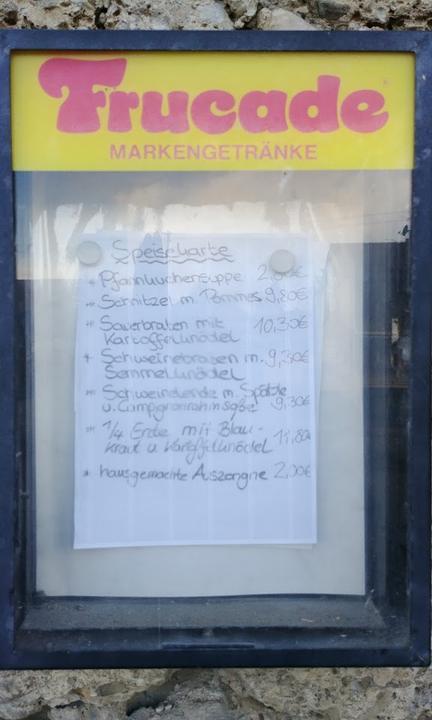 Frucade
MARKENGETRÄNKE
Speisekarte
* Pfannkuchensuppe 2,90€
* Schnitzel m. Pommes 9,80€
* Sauerbraten mit 10,30€
Kartoffelknödel
* Schweinebraten m. 9,30€
Semmelknödel
* Schweinelende m. Spätzle
u. 9,30€
* 1/4 Ente mit Blau-
kraut u. Kartoffelknödel 11,80€
* hausgemachte Auszongne 2,00€